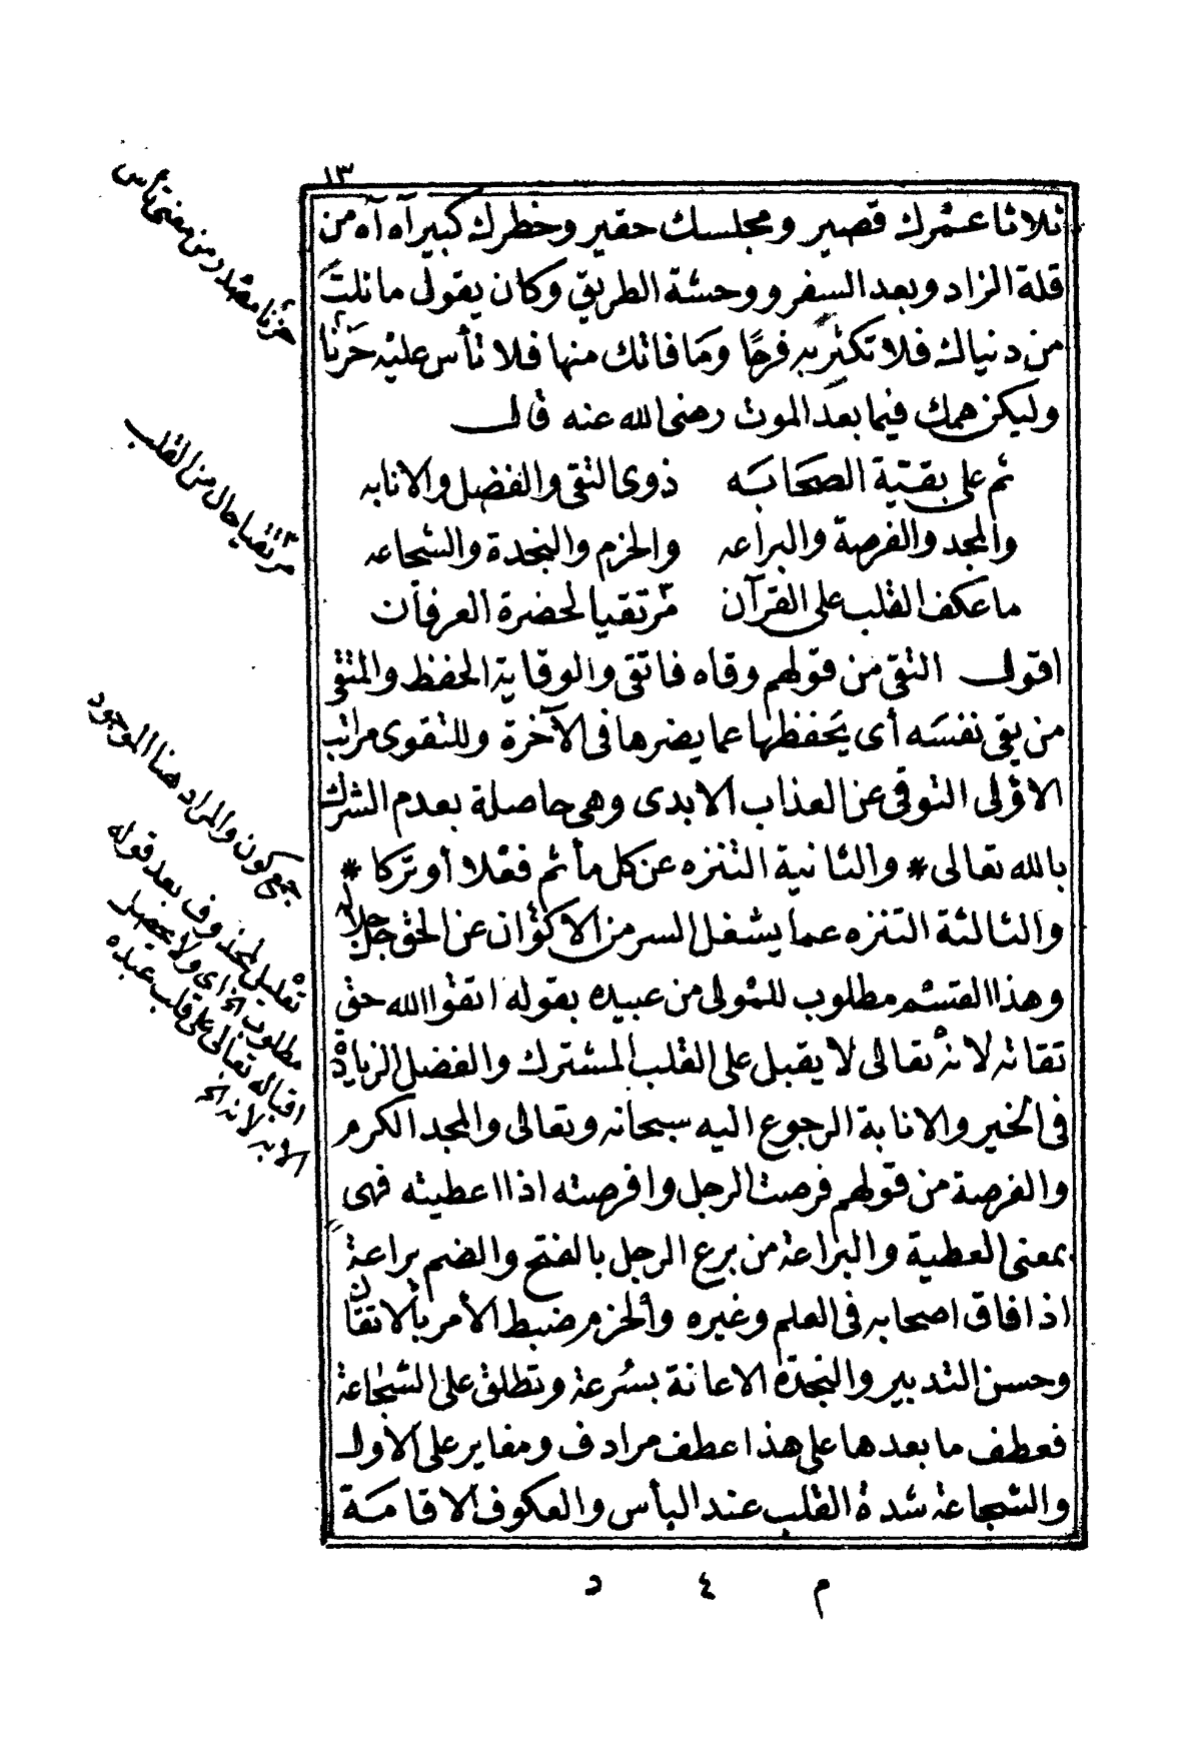 ١٣
ثلاثا عمرك قصير ومجلسك حقير وخطرك كبير آه آه من
قلة الزاد وبعد السفر ووحشة الطريق وكان يقول ما نلت
من دنياك فلا تكثر به فرحًا وما فاتك منها فلا تأس عليه حَزَنًا
وليكن همك فيما بعد الموت رضى الله عنه قال
ثم على بقية الصحابه ذوى التقى والفضل والانابه
والمجد والفرصة والبراعه والحزم والنجدة والشجاعه
ما عكف القلب على القرآن مرتقيا لحضرة العرفان
اقول التقى من قولهم وقاه فاتقى والوقاية الحفظ والمتقى
من يقى نفسه أى يحفظها عما يضرها فى الآخرة وللتقوى مراتب
الاولى التوقى عن العذاب الابدى وهى حاصلة بعدم الشرك
بالله تعالى * والثانية التنزه عن كل مأثم فعلا أو تركا *
والثالثة التنزه عما يشغل السر من الاكوان عن الحق جل جلاله
وهذا القسم مطلوب للمولى من عبيده بقوله اتقوا الله حق
تقاته لانه تعالى لا يقبل على القلب المشترك والفضل الزيادة
فى الخير والانابة الرجوع اليه سبحانه وتعالى والمجد الكرم
والفرصة من قولهم فرصت الرجل وافرصته اذا اعطيته فهى
بمعنى العطية والبراعة من برع الرجل بالفتح والضم براعة
اذا فاق اصحابه فى العلم وغيره والحزم ضبط الأمر بالاتقان
وحسن التدبير والنجدة الاعانة بسرعة وتطلق على الشجاعة
فعطف ما بعدها على هذا عطف مرادف ومغاير على الاول
والشجاعة شدة القلب عند البأس والعكوف الاقامة
م ٤ د
حزنا مصدر من معنى تأس
مرتقيا حال من القلب
جمع كون والمراد هنا الموجود
تعليل لمحذوف بعد قوله
مطلوب الخ اى ولا يحصل
اقباله تعالى على قلب عبده
الا به لانه الخ